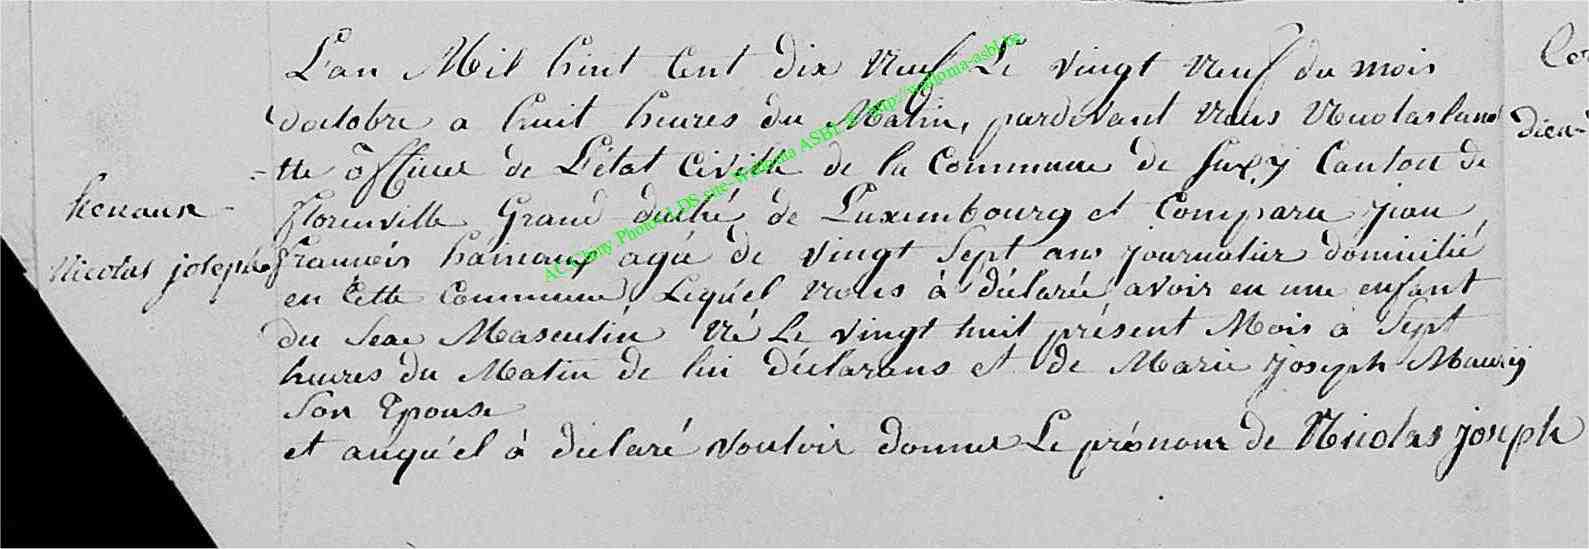 L'an Mil huit Cent dix Neuf Le vingt Neuf du mois
doctobre a huit heures du Matin, pardevant Nous Nicolas
tte officier de L'état Civille de la Commune de Suxy Canton de
florenville Grand duché de Luxembourg et Comparu jean
francois hainaux agée de vingt Sept ans journalier domicilié
en Cette Commune Lequ'el Nous à déclarée avoir eu une enfant
du Sexe Masculin Né Le vingt huit présent Mois à Sept
heures du Matin de lui déclarans et de Marie joseph
Son Epouse
et auqu'el à declaré vouloir donner Le prénom de Nicolas joseph
henaux
Nicolas joseph
AC Chiny Photo LDS site Wallonia ASBL http://wallonia-asbl.be